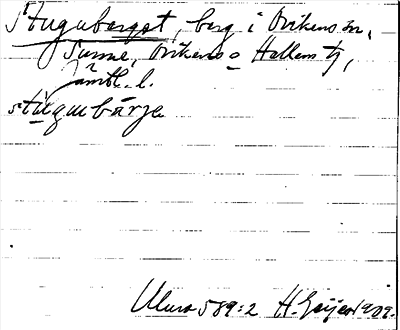 Stuguberget, berg i Ovikens sn,
Sunne, Ovikens o Hallens tg,
Jämtl. l.
stuguubärje
Uluros 589:2 H. Geijer 1909.